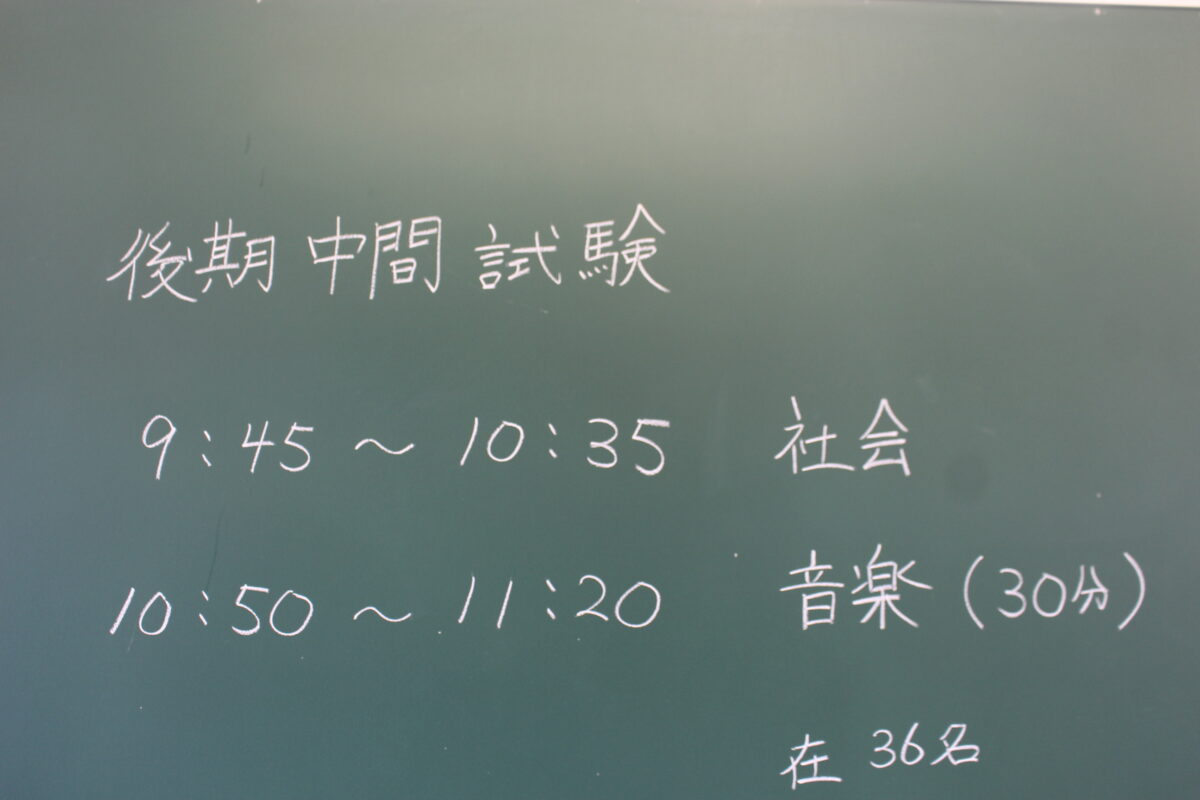 後期中間試験
9:45 ～ 10:35 社会
10:50 ～ 11:20 音楽 (30分)
在 36名